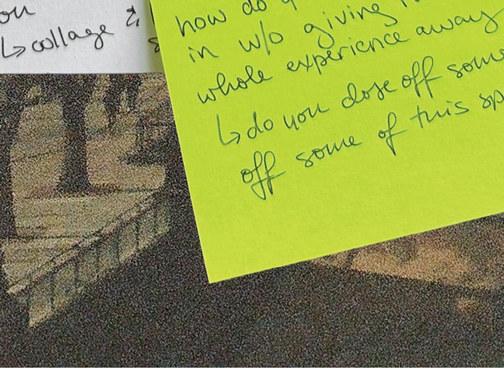 ou
↳ collage &
how do
in w/o giving
whole experience away
↳ do you dose off some
off some of this sp